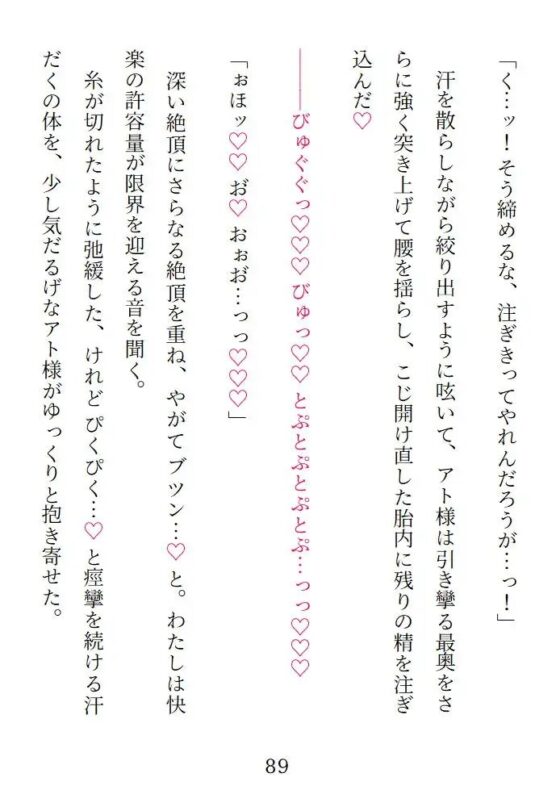 「く…ッ！そう締めるな、注ぎきってやれんだろうが…っ！」
　汗を散らしながら絞り出すように呟いて、アト様は引き攣る最奥をさ
らに強く突き上げて腰を揺らし、こじ開け直した胎内に残りの精を注ぎ
込んだ♡
―――びゅぐぐっ♡♡♡びゅっ♡♡とぷとぷとぷとぷ…っっ♡♡♡
「ぉほッ♡♡お゛♡おぉお゛…っっ♡♡♡」
　深い絶頂にさらなる絶頂を重ね、やがてブツン…♡と。わたしは快
楽の許容量が限界を迎える音を聞く。
　糸が切れたように弛緩した、けれどぴくぴく…♡と痙攣を続ける汗
だくの体を、少し気だるげなアト様がゆっくりと抱き寄せた。
89